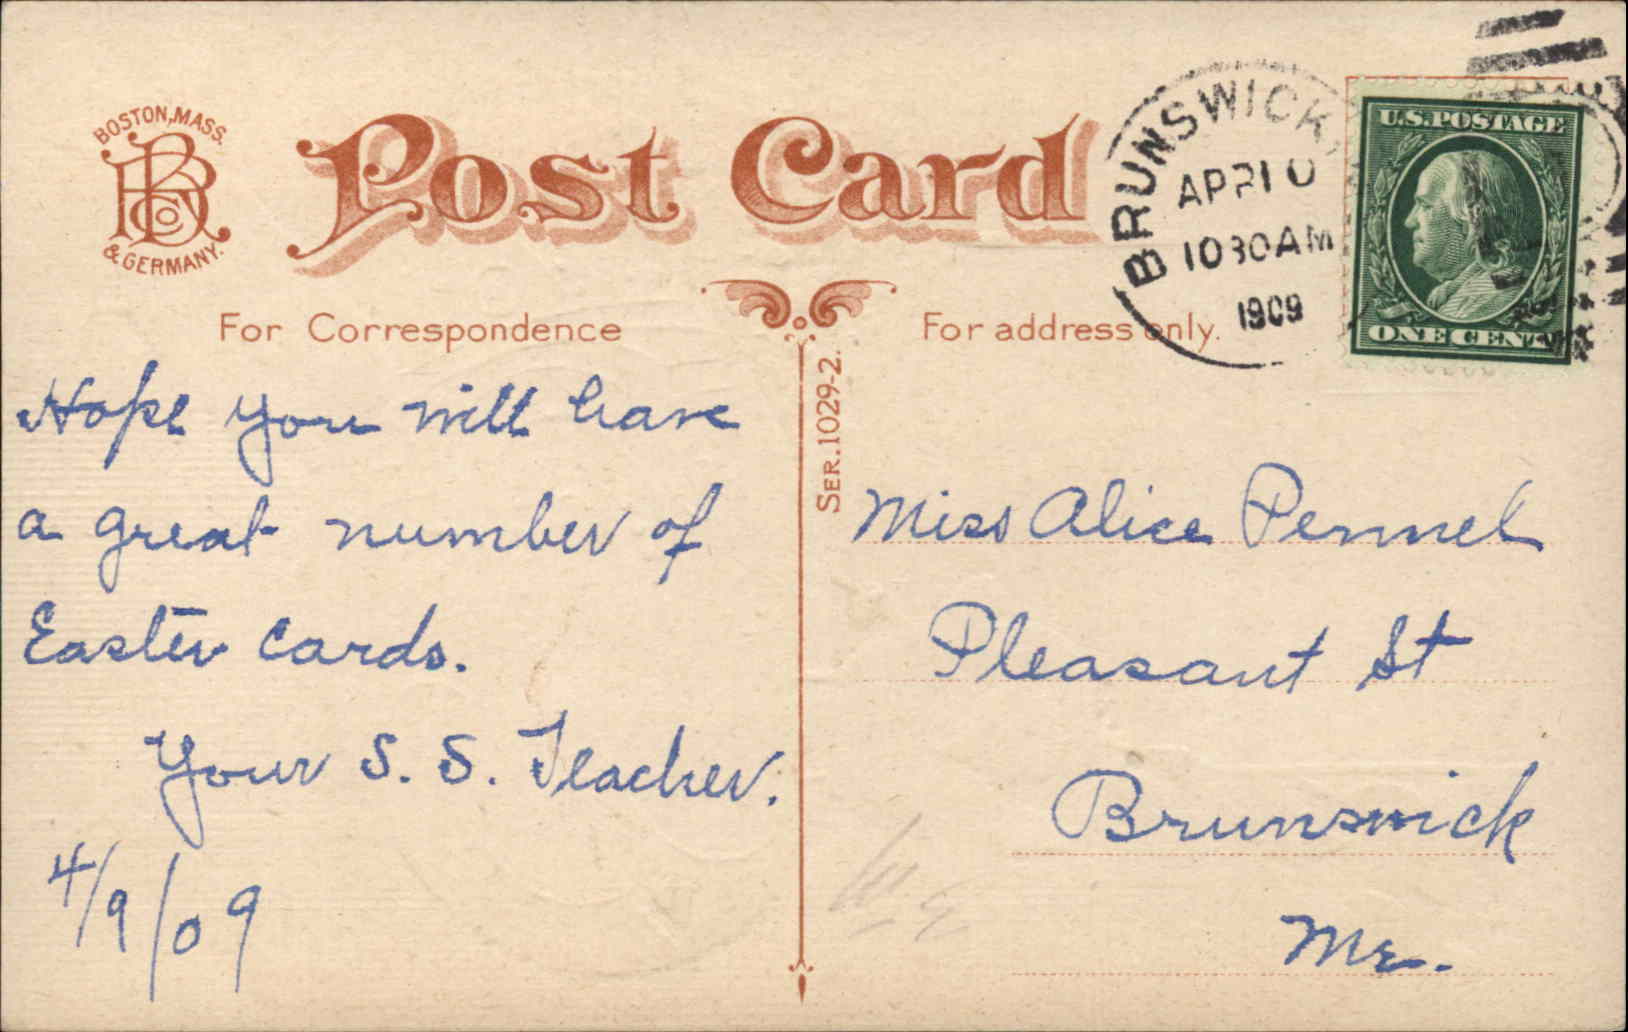 BOSTON, MASS.
& GERMANY.
Post Card
BRUNSWICK,
APR 10
1030AM
1909
U.S. POSTAGE
ONE CENT
For Correspondence
For address only.
SER. 1029-2.
Hope you will have
a great number of
Easter Cards.
Your S. S. Teacher.
4/9/09
Miss Alice Pennel
Pleasant St
Brunswick
Me.